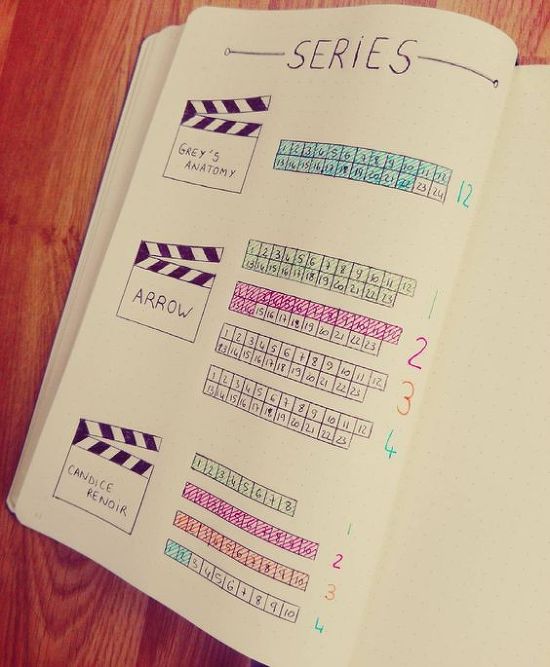 SERIES
GREY'S
ANATOMY
1 2 3 4 5 6 7 8 9 10 11 12
13 14 15 16 17 18 19 20 21 22 23 24
12
ARROW
1 2 3 4 5 6 7 8 9 10 11 12
13 14 15 16 17 18 19 20 21 22 23
1
15 16 17 18 19 20 21 22 23
2
1 2 3 4 5 6 7 8 9 10 11 12
14 15 16 17 18 19 20 21 22 23
3
1 2 3 4 5 6 7 8 9 10 11 12
13 14 15 16 17 18 19 20 21 22 23
4
CANDICE
RENOIR
1 2 3 4 5 6 7 8
1
2
1 2 3 4 5 6 7 8 9 10
3
1 2 3 4 5 6 7 8 9 10
4